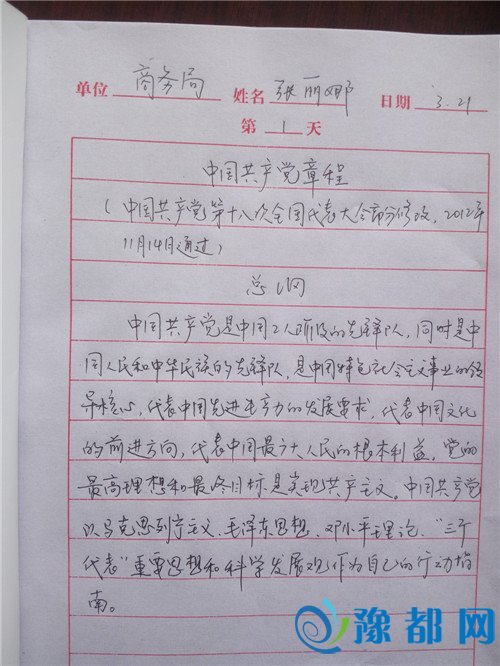 单位 商务局 姓名 张丽娜 日期 3.21
第 1 天
中国共产党章程
(中国共产党第十八次全国代表大会部分修改,2012年
11月14日通过)
总纲
中国共产党是中国工人阶级的先锋队,同时是中
国人民和中华民族的先锋队,是中国特色社会主义事业的领
导核心,代表中国先进生产力的发展要求,代表中国文化
的前进方向,代表中国最广大人民的根本利益。党的
最高理想和最终目标是实现共产主义。中国共产党
以马克思列宁主义、毛泽东思想、邓小平理论、“三个
代表”重要思想和科学发展观作为自己的行动指
南。
豫都网